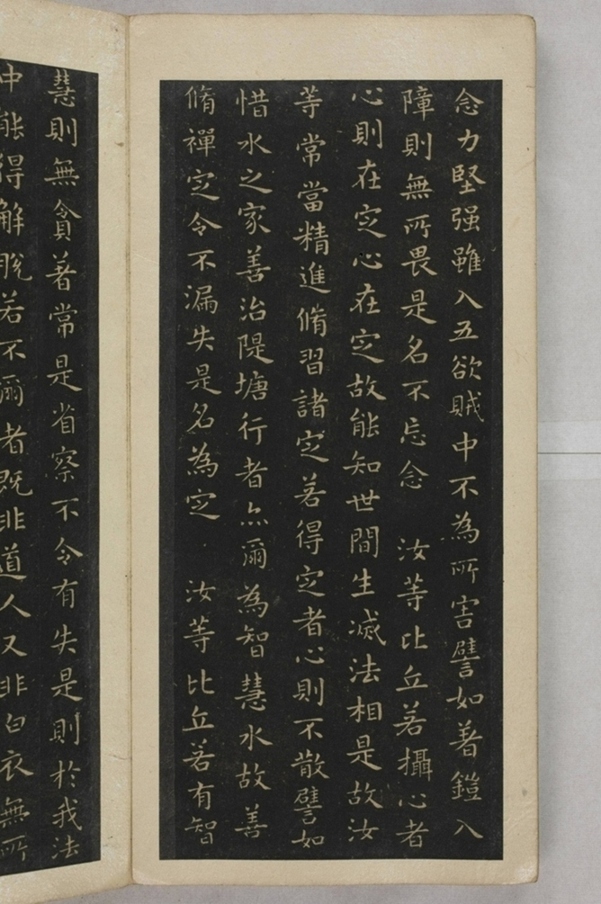 念力堅强雖入五欲賊中不為所害譬如著鎧入
障則無所畏是名不忘念　汝等比丘若攝心者
心則在定心在定故能知世間生滅法相是故汝
等常當精進脩習諸定若得定者心則不散譬如
惜水之家善治隄塘行者亦爾為智慧水故善
脩禪定令不漏失是名為定　汝等比丘若有智
慧則無貪著常是省察不令有失是則於我法
中能得解脫若不爾者既非道人又非白衣無所